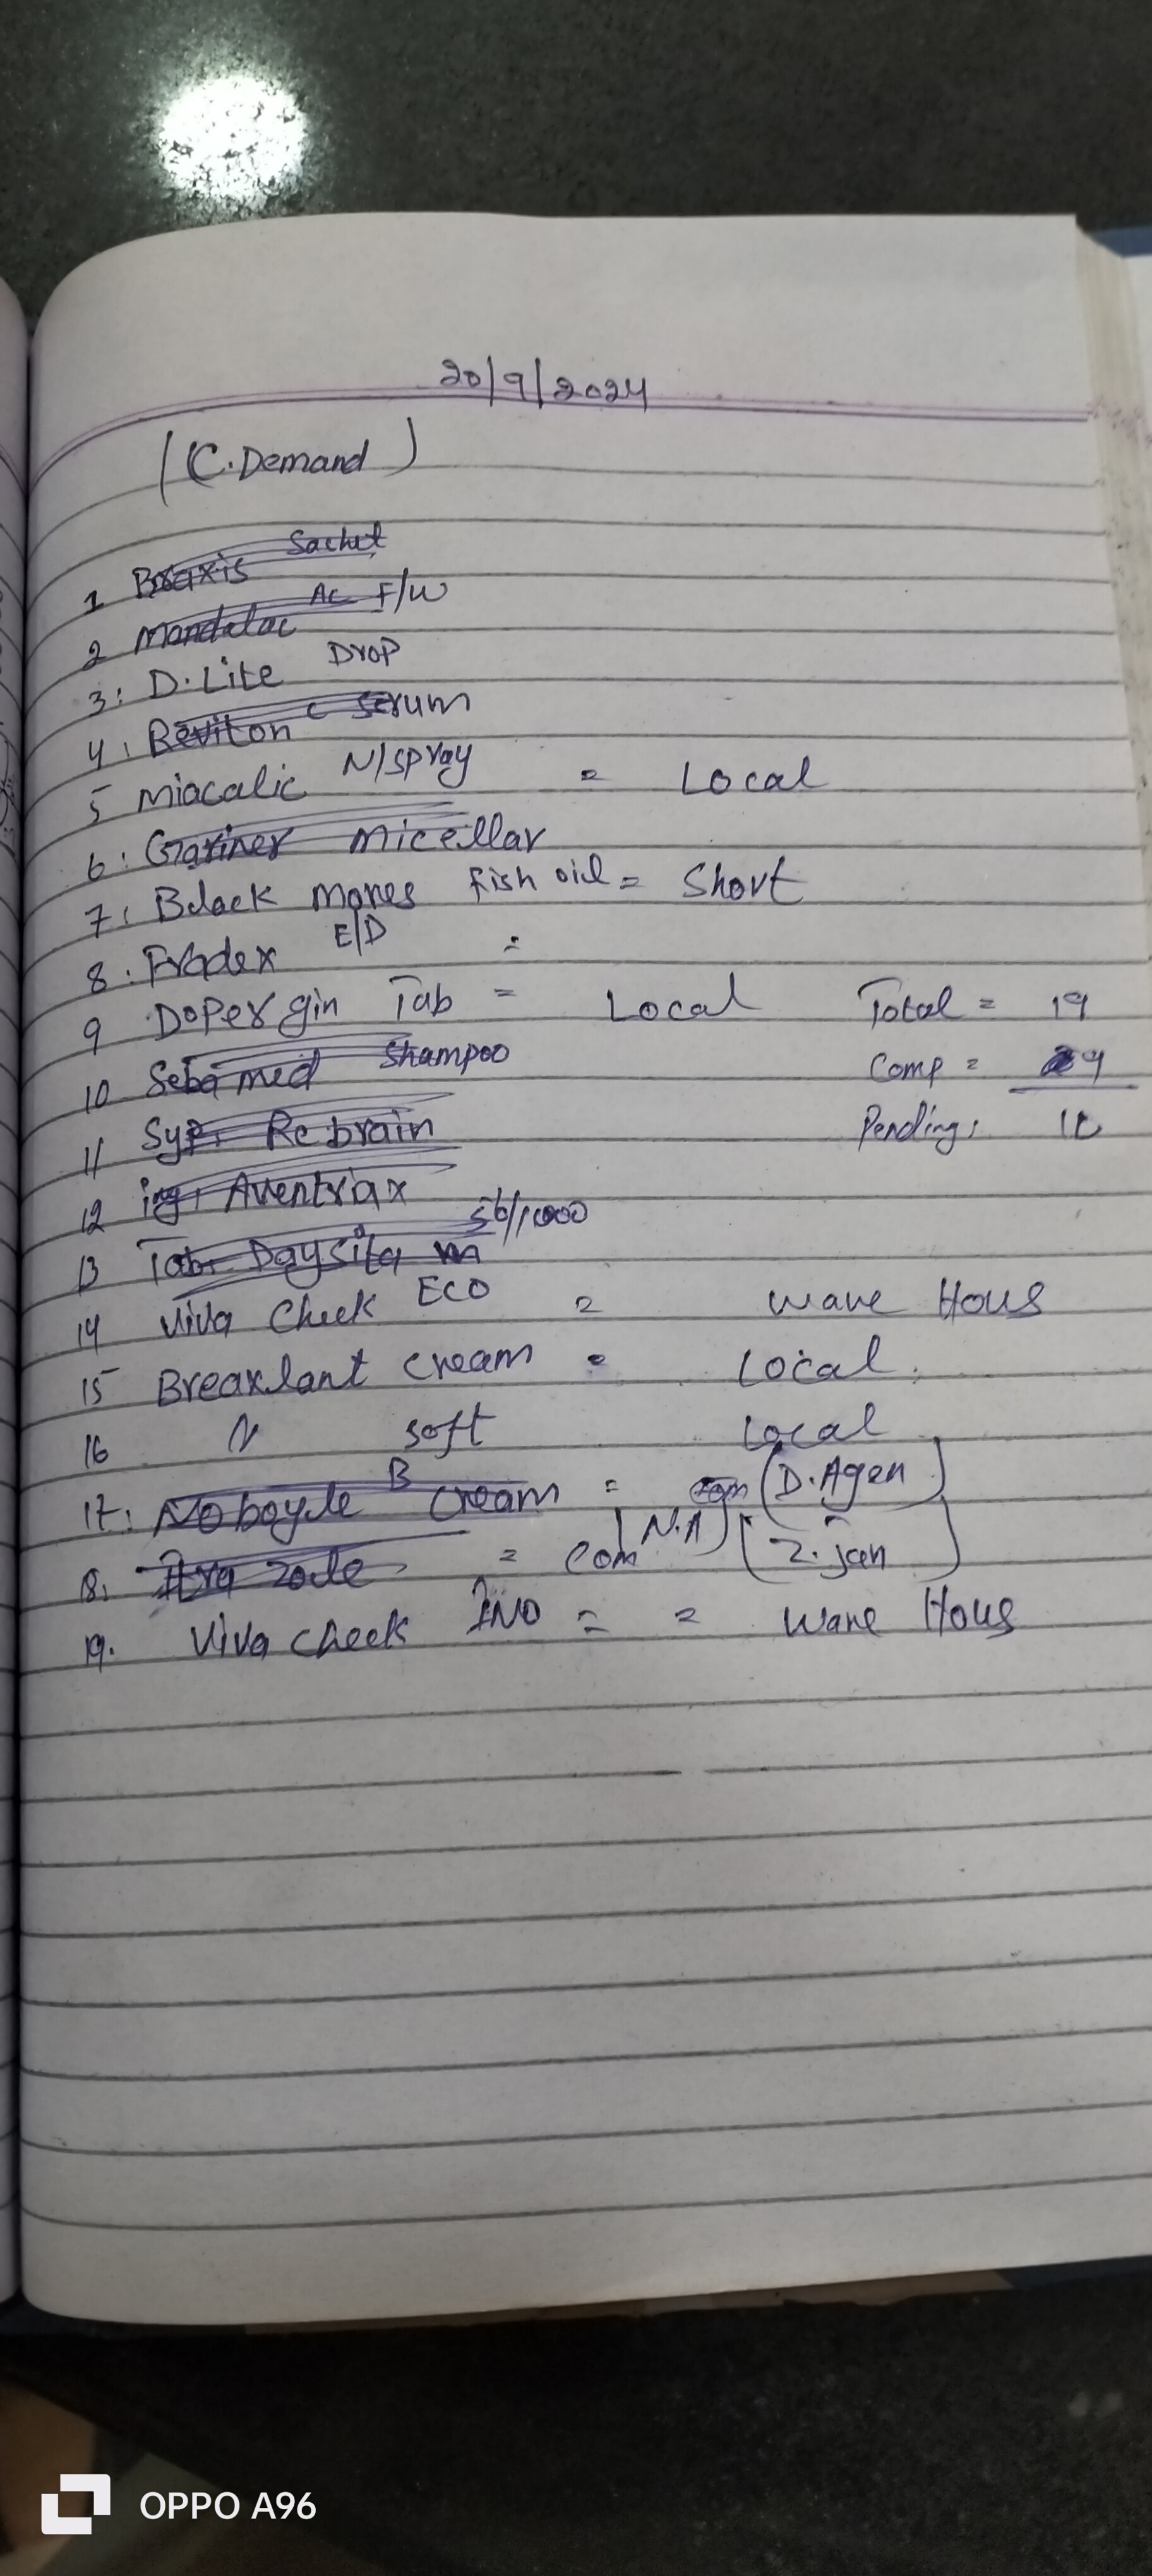 20/9/2024
(C. Demand)
1 Braxis Sachet
2 Mandelac Ac F/W
3: D.Lite Drop
4: Reviton C Serum
5 Miacalic N/spray = Local
6: Gariner Micellar
7: Black mores fish oil = Short
8: Fradex E/D =
9 Dopergin Tab = Local Total = 19
10 Sebamed Shampoo Comp = 9
11 Syp: Rebrain Pending: 10
12 inj: Aventriax
13 Tab- Daysita m 50/1000
14 Viva Check ECO = Ware Hous
15 Breaxlant Cream = Local.
16 " soft Local
17: Noboyle B Cream = com (D.Agen)
18. = Com (N.A) (Z.jan)
19. Viva check INO = = Ware Hous
OPPO A96